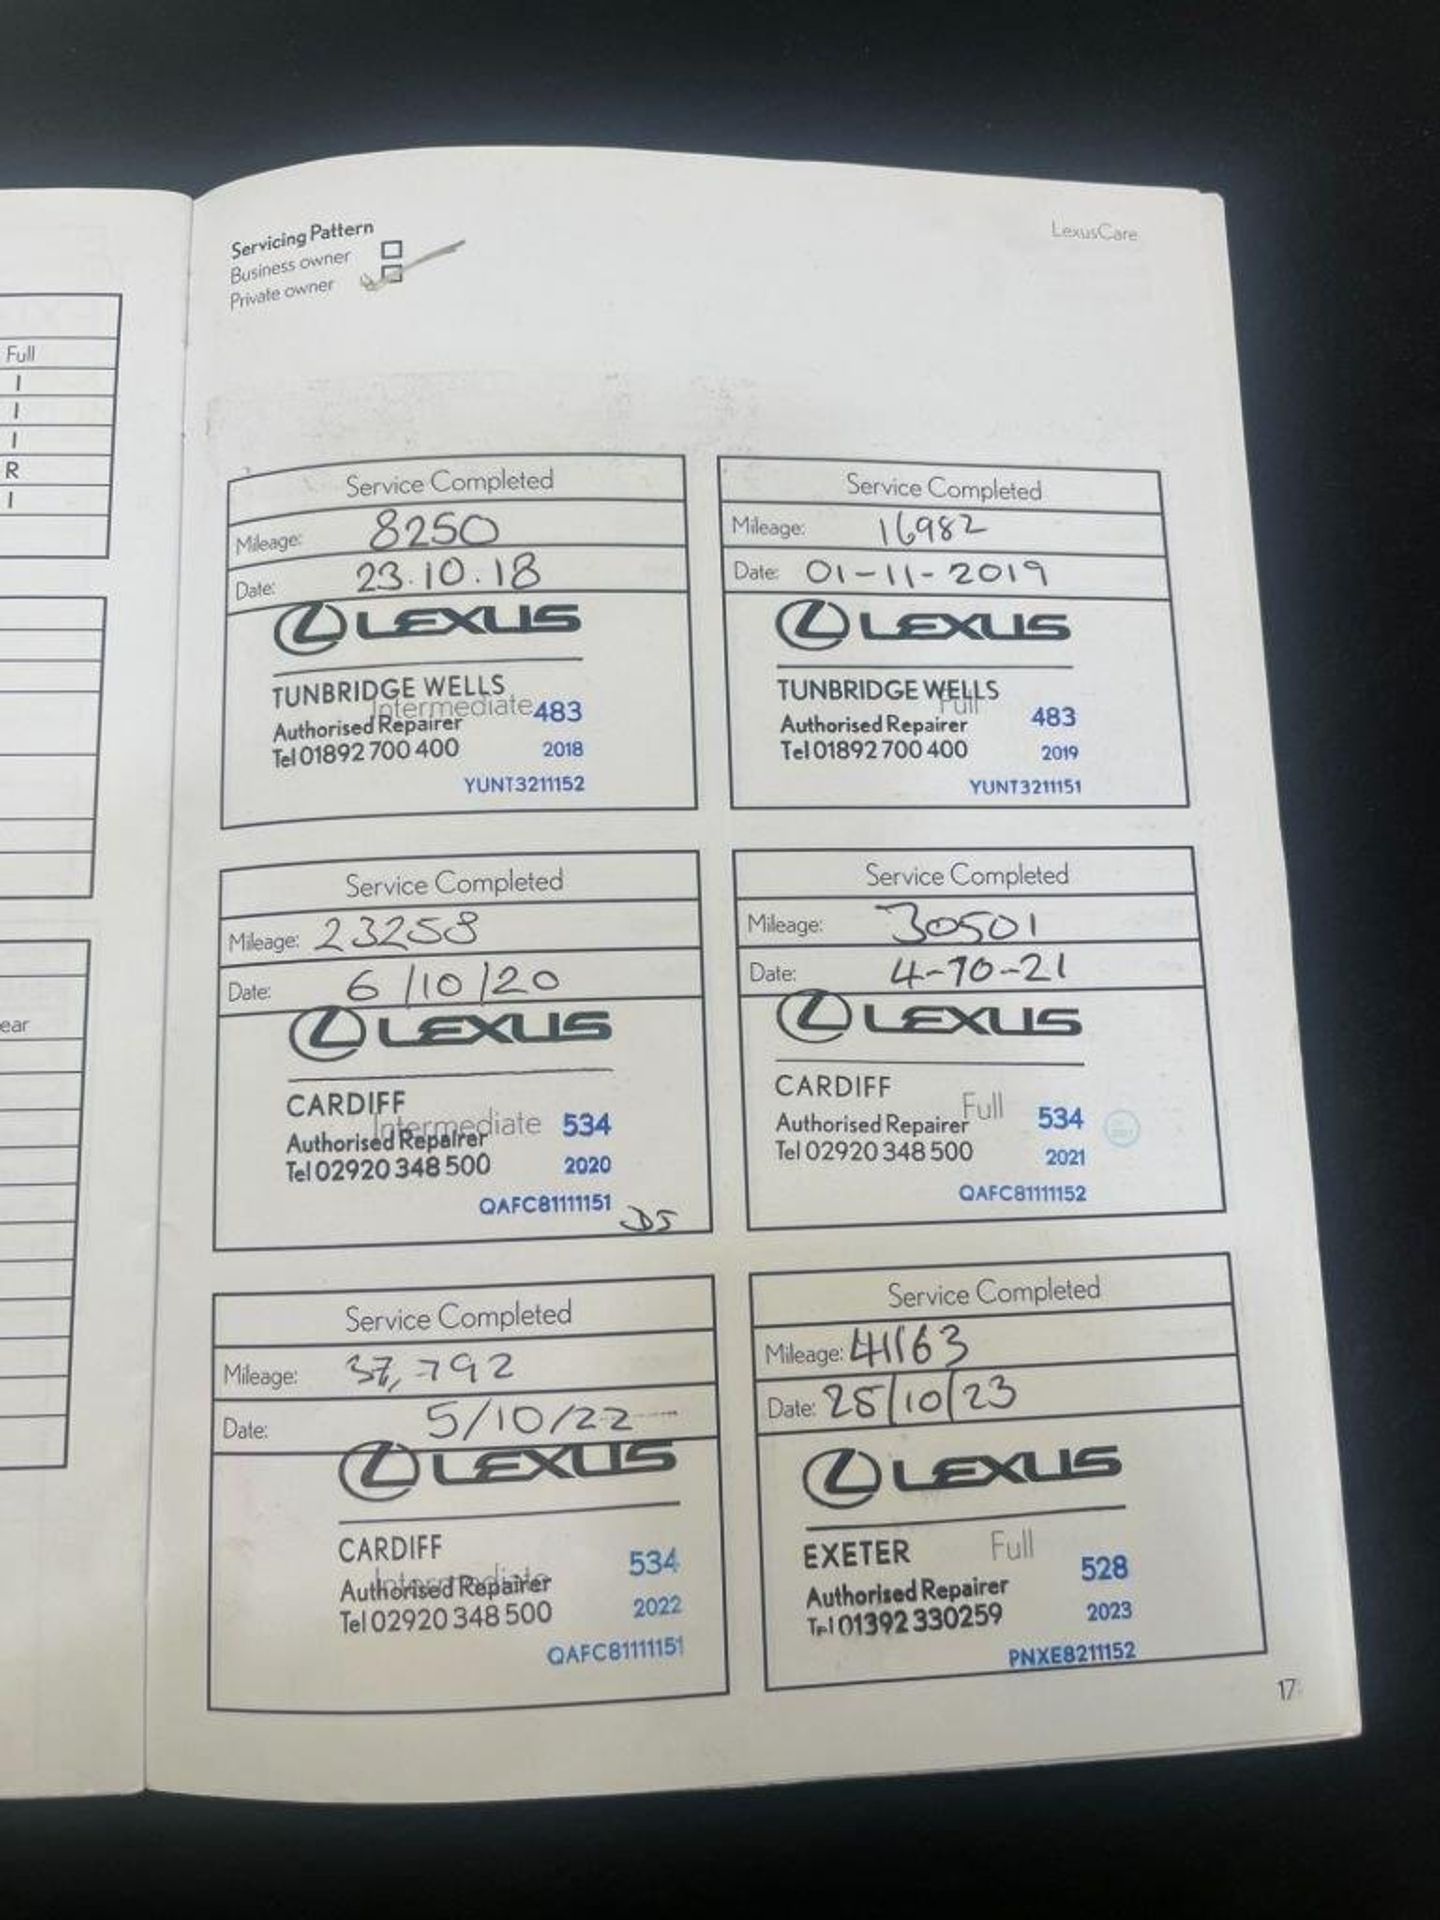 Servicing Pattern
Business owner
Private owner
LexusCare
Full
I
I
I
R
I
ear
Service Completed
Mileage: 8250
Date: 23.10.18
LEXUS
TUNBRIDGE WELLS
Intermediate 483
Authorised Repairer
Tel 01892 700 400 2018
YUNT3211152
Service Completed
Mileage: 16982
Date: 01-11-2019
LEXUS
TUNBRIDGE WELLS
Full
Authorised Repairer 483
Tel 01892 700 400 2019
YUNT3211151
Service Completed
Mileage: 23258
Date: 6/10/20
LEXUS
CARDIFF
Intermediate 534
Authorised Repairer
Tel 02920 348 500 2020
QAFC81111151
DS
Service Completed
Mileage: 30501
Date: 4-10-21
LEXUS
CARDIFF
Full
Authorised Repairer 534
Tel 02920 348 500 2021
QAFC81111152
Service Completed
Mileage: 37,792
Date: 5/10/22
LEXUS
CARDIFF
534
Intermediate
Authorised Repairer
Tel 02920 348 500 2022
QAFC81111151
Service Completed
Mileage: 41163
Date: 25/10/23
LEXUS
EXETER Full
528
Authorised Repairer
Tel 01392 330259 2023
PNXE8211152
17